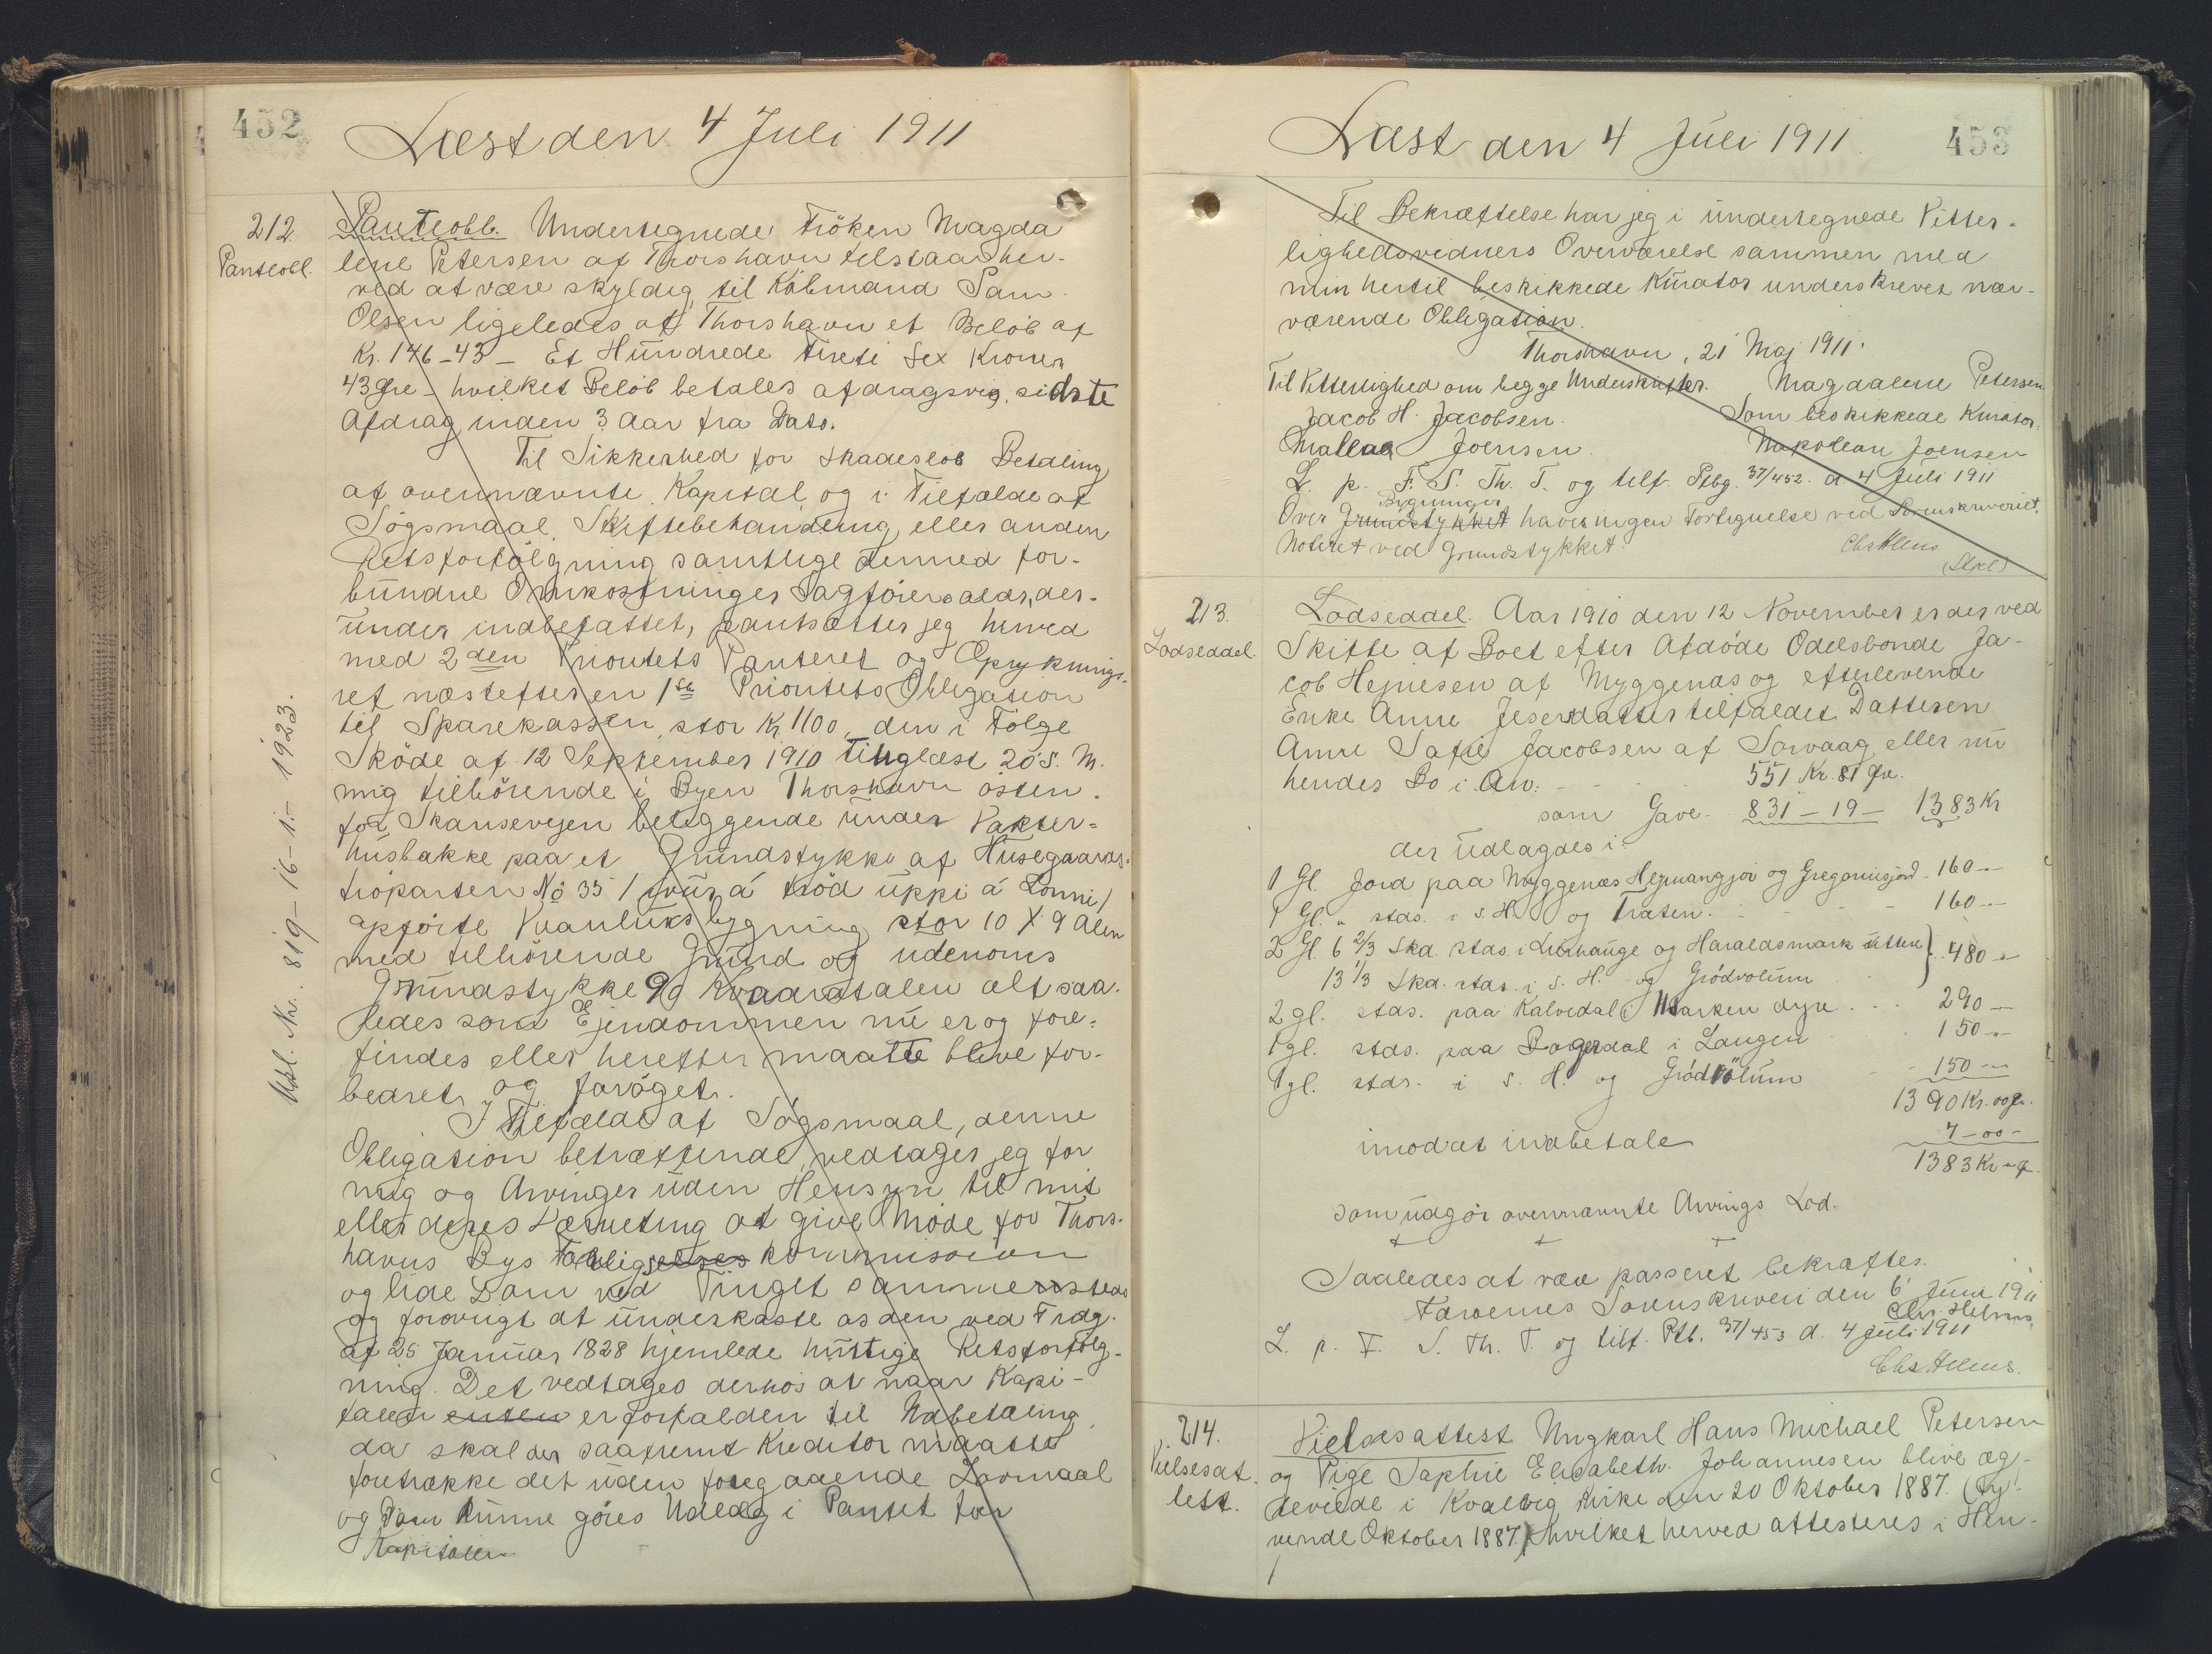 452
Læst den 4 Juli 1911
212.
Panteobl.
Panteobl. Undertegnede Fröken Magda
lene Petersen af Thorshavn tilstaar her-
ved at være skyldig til Köbmand Sam.
Olsen ligeledes af Thorshavn et Belöb af
Kr. 146-43 - Et Hundrede Fireti Sex Kroner
43 Øre - hvilket Belöb betales afdragsvis, sidste
Afdrag inden 3 Aar fra Dato.
Til Sikkerhed for skadeslös Betaling
af ovennævnte Kapital og i Tilfælde af
Sögsmaal, Skiftebehandling eller anden
Retsforfölgning samtlige dermed for-
bundne Omkostninger Sagförersalær, der-
under indbefattet, pantsætter jeg herved
med 2den Prioritets Panteret og Opryknings-
ret næstefter en 1ste Prioritets Obligation
til Sparekassen, stor Kr 1100, den i Fölge
Sköde af 12 September 1910 tinglæst 20 s. M.
mig tilhörende i Byen Thorshavn östen-
for Skansevejen beliggende under Vagter-
husbakke paa et Grundstykke af Husegaards-
tröparten No 35 / tröd uppi á
opförte Vaaningsbygning stor 10 X 9 Alen
med tilhörende Grund og udenoms
Grundstykke 90 Kvadratalen alt saa-
ledes som Ejendommen nu er og fore-
findes eller herefter maatte blive for-
bedret og foröget.
I Tilfælde af Sögsmaal, denne
Obligation betræffende, vedtager jeg for
mig og Arvinger uden Hensyn til mit
eller deres Værneting at give Möde for Thors-
havns Bys Forligelses kommission
og lide Dom ved Tinget sammesteds
og forövrigt at underkaste os den ved Frdg.
af 25 Januar 1828 hjemlede hurtige Retsforfölg-
ning. Det vedtages derhos at naar Kapi-
talen enten er forfalden til Udbetaling,
da skal der saafremt Kreditor maatte
foretrække det uden foregaaende Lovmaal
og Dom kunne göres Udlæg i Pantet for
Kapitalen
Udsl. Nr. 819-16-1-1923.
453
Læst den 4 Juli 1911
Til Bekræftelse har jeg i undertegnede Vitter-
lighedsvidners Overværelse sammen med
min hertil beskikkede Kurator underskrevet nær-
værende Obligation.
Thorshavn, 21 Maj 1911.
Til Vitterlighed om begge Underskrifter. Magdalene Petersen
Jacob H. Jacobsen. Som beskikkede Kurator:
Joensen. Napolean Joensen
L. p. F. S. Th. T. og tilf. Ptbg. 37/452. d 4 Juli 1911
Bygninger
Over Grundstykket haves ingen Fortegnelse ved Sorenskriveriet.
Noteret ved Grundstykket. Chr Helms
213.
Lodseddel.
Lodseddel. Aar 1910 den 12 November er der ved
Skifte af Boet efter Afdöde Odelsbonde Ja-
cob Hejnesen af Myggenæs og efterlevende
Enke Anne Jesersdatter tilfaldet Datteren
Anne Sofie Jacobsen af Sorvaag eller nu
hendes Bo i Arv: - - - 551 Kr. 81 Øre.
som Gave. 831-19- 1383 Kr
der udlagdes i
1 Gl. Jord paa Myggenæs og Gregoriusjord - 160 -
1 Gl. " stds. i S. H. og Træten. - - - 160 -
2 Gl. 6 2/3 Skd. stds. i og Haraldsmark } 480 -
13 1/3 Skd. stds. i S. H. og Grödvolum
2 gl. stds. paa Kalvedal i Marken dyre - - 290 -
1 gl. stds. paa i Langen 150 -
1 gl. stds. i S. H. og Grödvolum 150 -
1390 Kr. 00 Ør.
imod at indbetale 7-00-
1383 Kr - Ø.
som udgör ovennævnte Arvings Lod.
Saaledes at være passeret bekræftes.
Færöernes Sorenskriveri den 6 Juni 1911
Chr. Helms.
L. p. F. S. Th. T. og tilf. Ptb. 37/453 d. 4 Juli 1911
Chr Helms.
214.
Vielsesat-
test.
Vielsesattest. Ungkarl Hans Michael Petersen
og Pige Saphie Elisabeth Johannesen blive æg-
teviede i Kvalvig Kirke den 20 Oktober 1887. (Ty-
vende Oktober 1887.) hvilket herved attesteres i Hen-